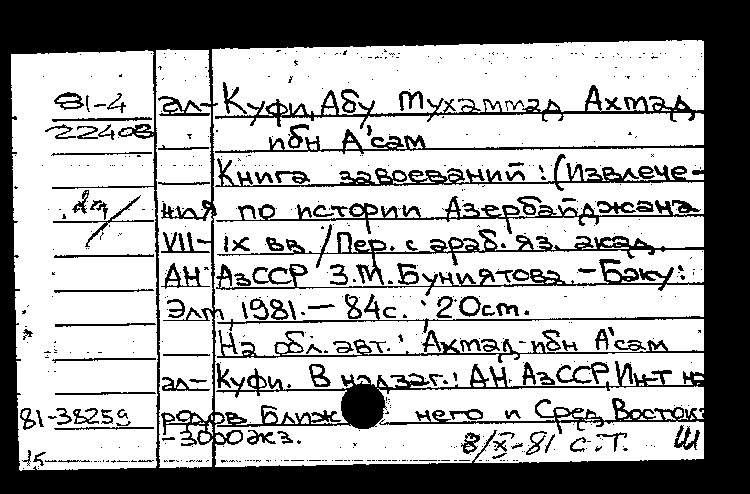 81-4 ал-Куфи, Абу Мухаммад Ахмад
22408 ибн А'сам
Книга завоеваний : (Извлече-
ния по истории Азербайджана
VII-IX вв. / Пер. с араб. яз. акад.
АН АзССР З.М. Буниятова. - Баку:
Элм, 1981. - 84 с. ; 20 см.
На обл. авт. : Ахмад ибн А'сам
ал-Куфи. В надзаг. : АН АзССР, Ин-т на
81-38259 родов Ближнего и Сред. Восток
-3000 экз. 8/X-81 с.т. Ш
15